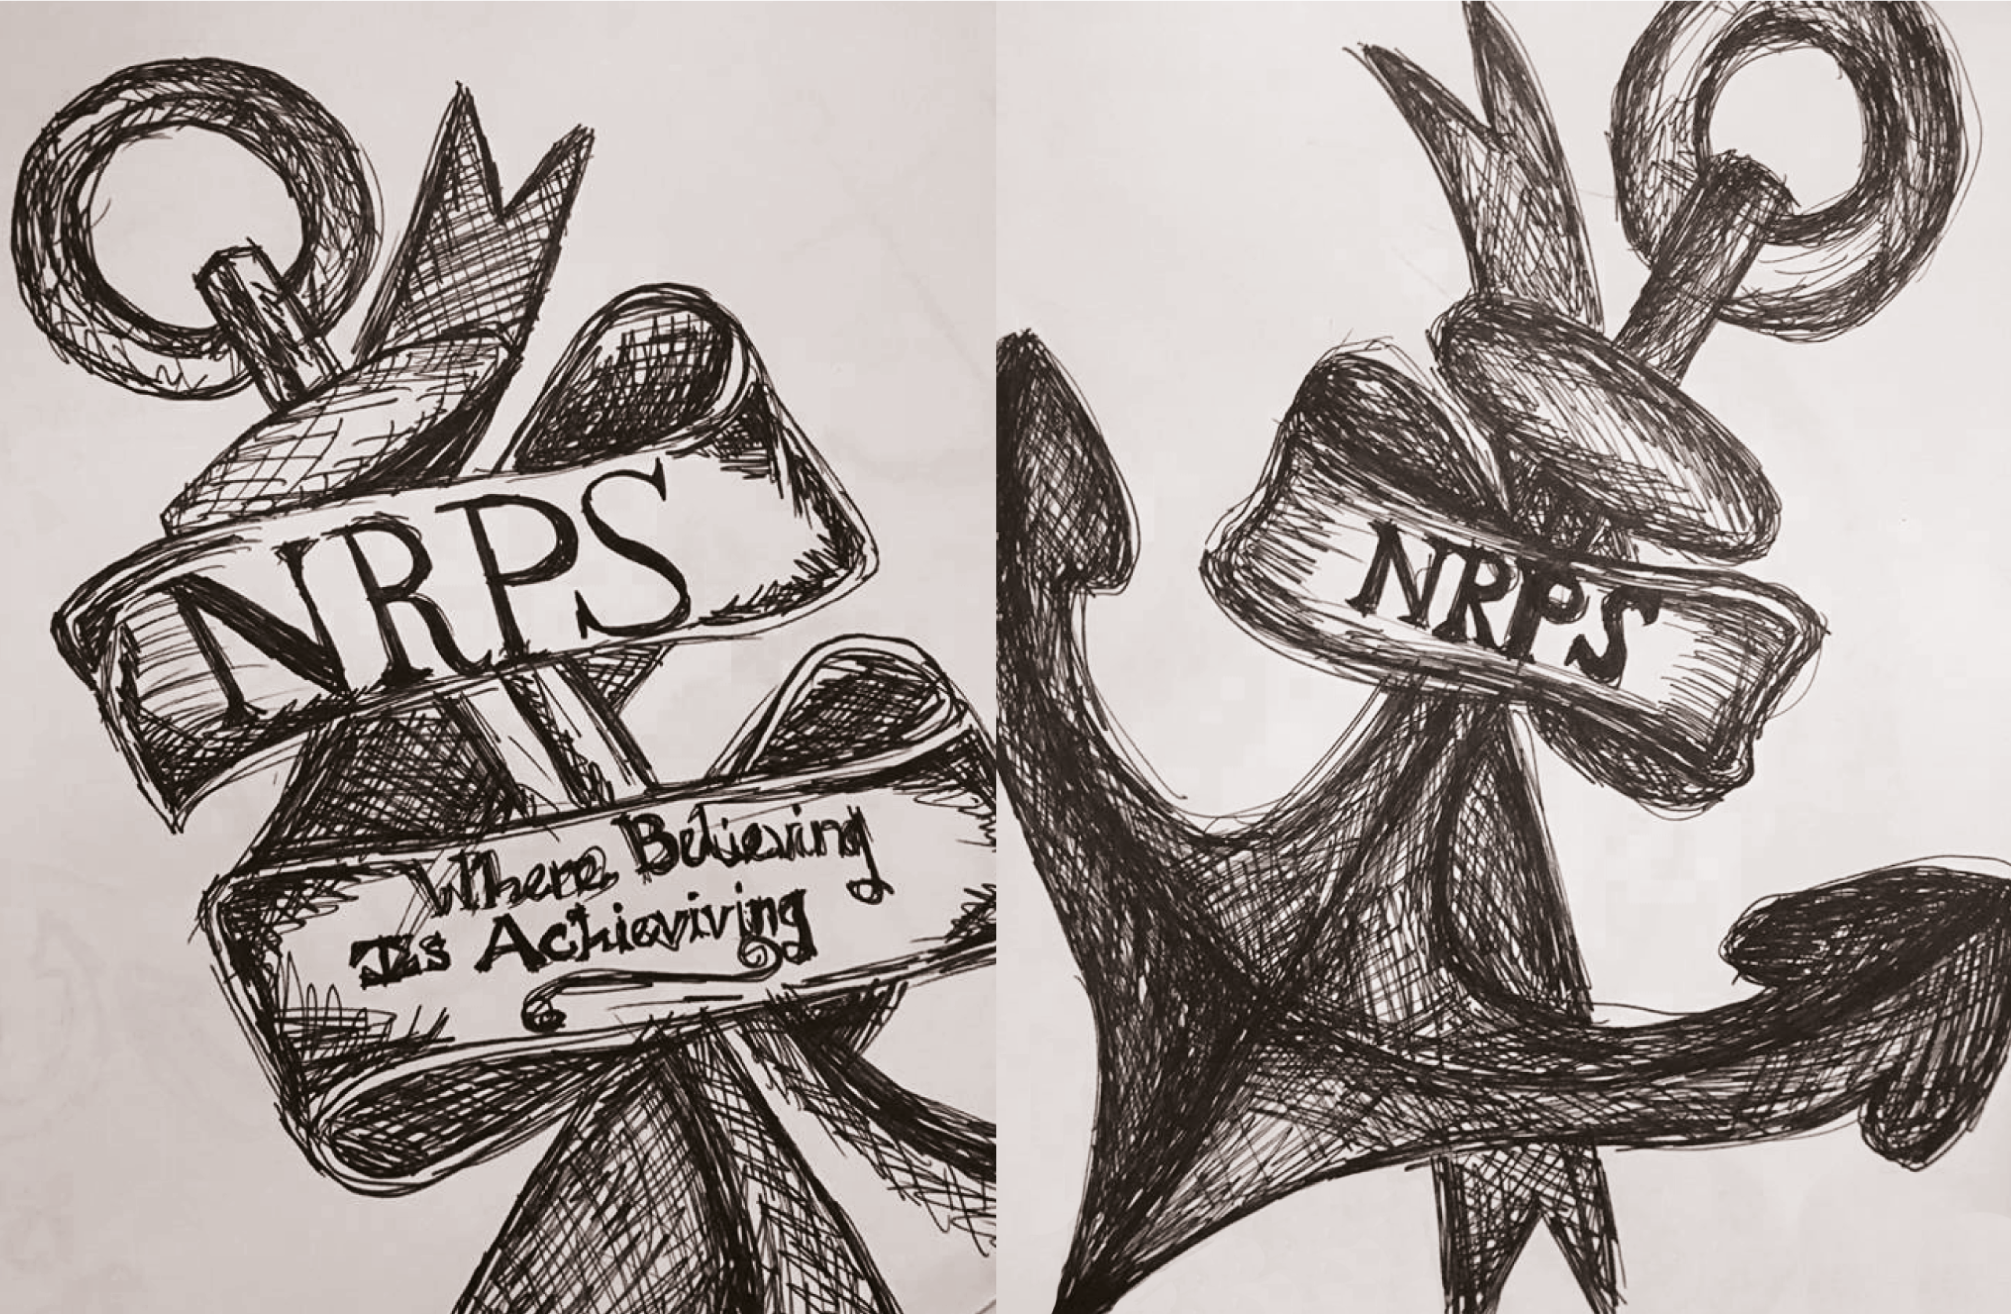 NRPS
Where Believing
Is Achieviving
NRPS